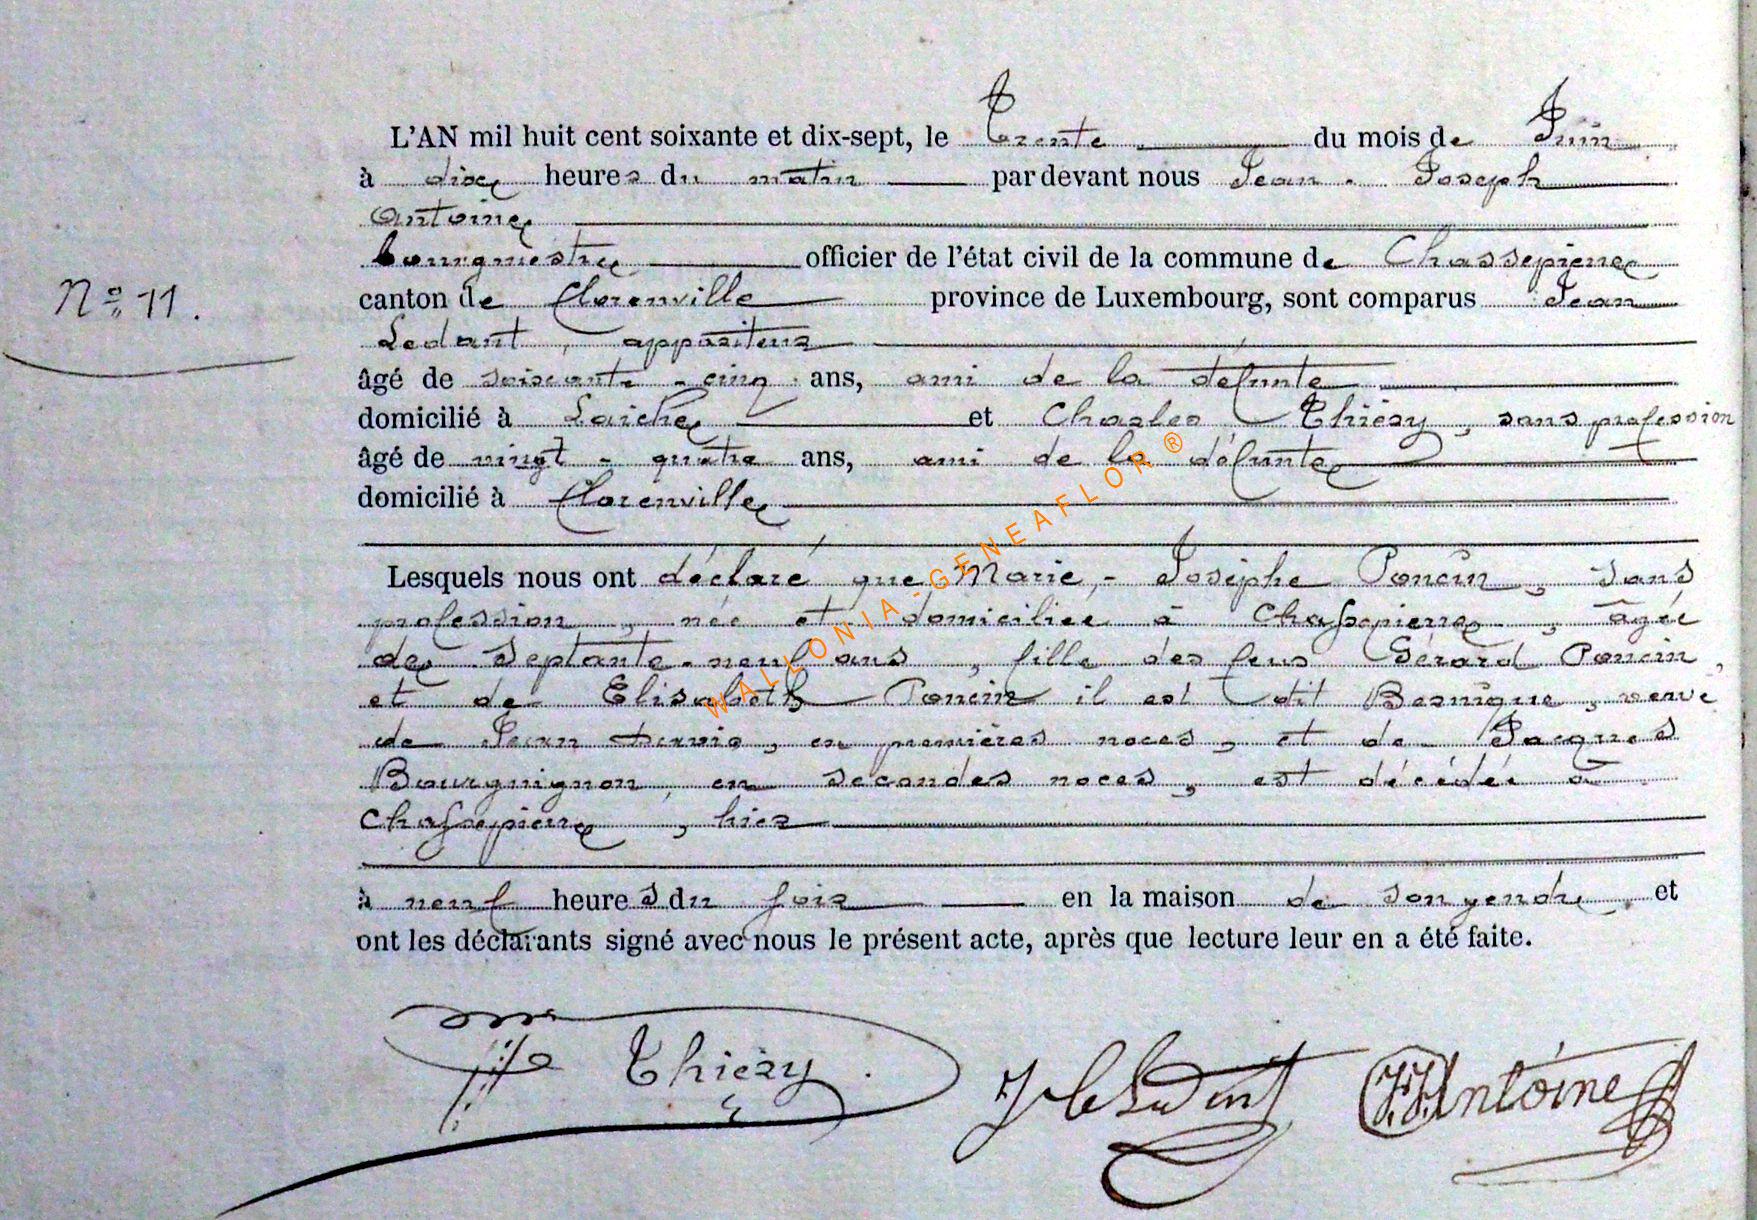 L'AN mil huit cent soixante et dix-sept, le Trente du mois de Juin
à dixe heures du matin par devant nous Jean - Joseph
Antoine
bourgmestre officier de l'état civil de la commune de Chassepierre
N° 11.
canton de florenville province de Luxembourg, sont comparus Jean
Ledant, appariteur
âgé de soixante - cinq ans, ami de la défunte
domicilié à Laiche et Charles Thiéry, sans profession
âgé de vingt - quatre ans, ami de la défunte
domicilié à florenville
Lesquels nous ont déclaré que Marie - Josèphe Poncin, sans
profession, née et domiciliée à Chassepierre, âgée
de septante-neuf ans, fille des feus Gérard Poncin,
et de Elisabeth Poncin il est dit Bernique, veuve
de Jean, en premières noces, et de Jacques
Bourguignon, en secondes noces, est décédée à
Chassepierre, hier
à neuf heures du soir en la maison de son gendre et
ont les déclarants signé avec nous le présent acte, après que lecture leur en a été faite.
Thiéry. Ledant J.J. Antoine
WALLONIA-GENEAFLOR®